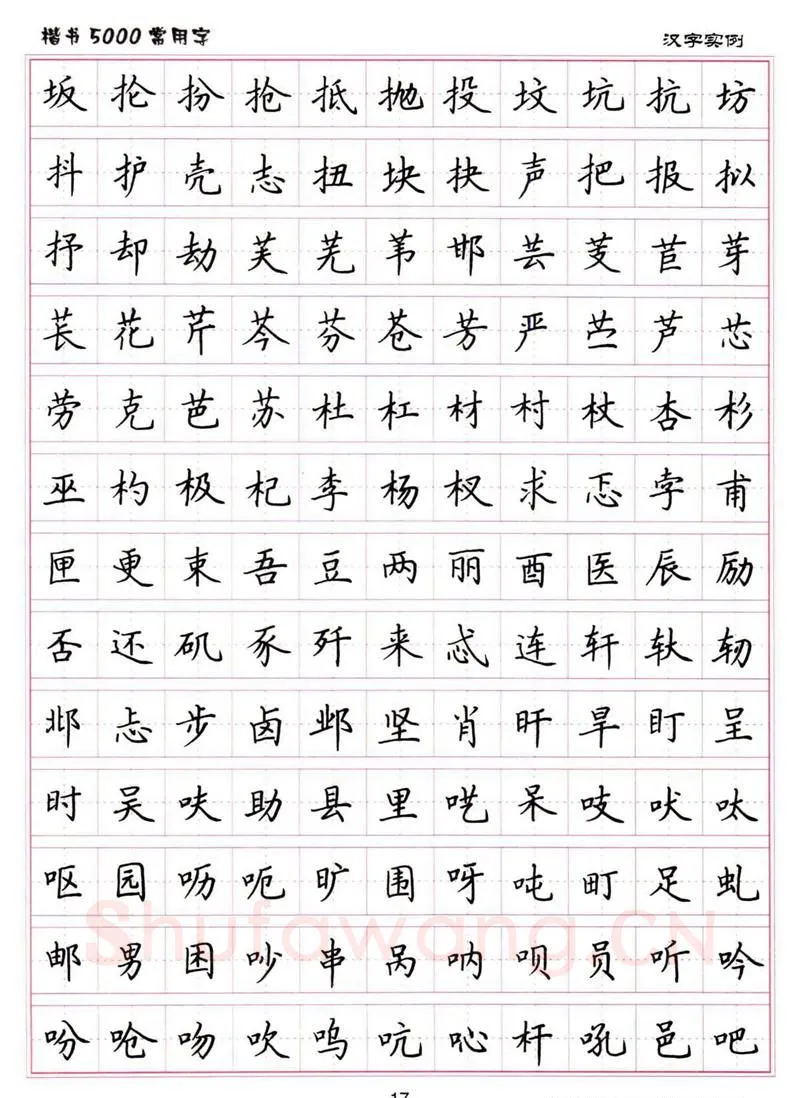 楷书5000常用字 汉字实例
坂 抡 扮 抢 抵 抛 投 坟 坑 抗 坊
抖 护 壳 志 扭 块 抉 声 把 报 拟
抒 却 劫 芙 芜 苇 邯 芸 芰 苣 芽
苌 花 芹 芩 芬 苍 芳 严 苎 芦 芯
劳 克 芭 苏 杜 杠 材 村 杖 杏 杉
巫 杓 极 杞 李 杨 杈 求 忑 孛 甫
匣 更 束 吾 豆 两 丽 酉 医 辰 励
否 还 矶 豕 歼 来 忒 连 轩 轪 轫
邶 忐 步 卤 邺 坚 肖 旰 旱 盯 呈
时 吴 呋 助 县 里 呓 呆 吱 吠 呔
呕 园 呖 呃 旷 围 呀 吨 町 足 虬
邮 男 困 吵 串 呙 呐 呗 员 听 吟
吩 呛 吻 吹 呜 吭 吣 杆 吼 邑 吧
Shufawang.CN
17